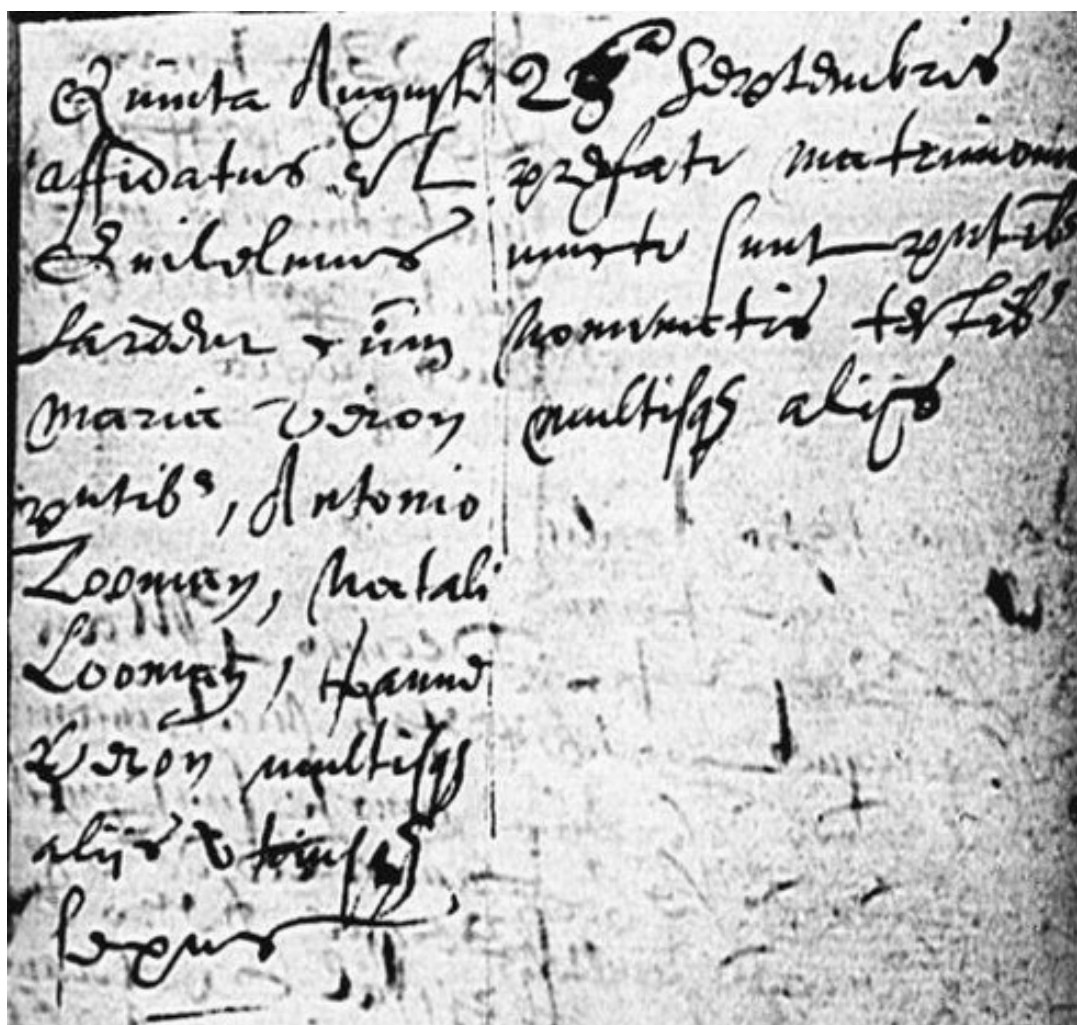 Quinta Augusti
affidatus est
Guilelmus
cum
Maria Veron
pntibs, Antonio
Looman, Natali
Looman, Joanne
Veron multisqz
aliis utriusqz
sexus
28a Septembris
prefati matrimonio
iuncti sunt pntib
nominatis testib'
multisqz alijs